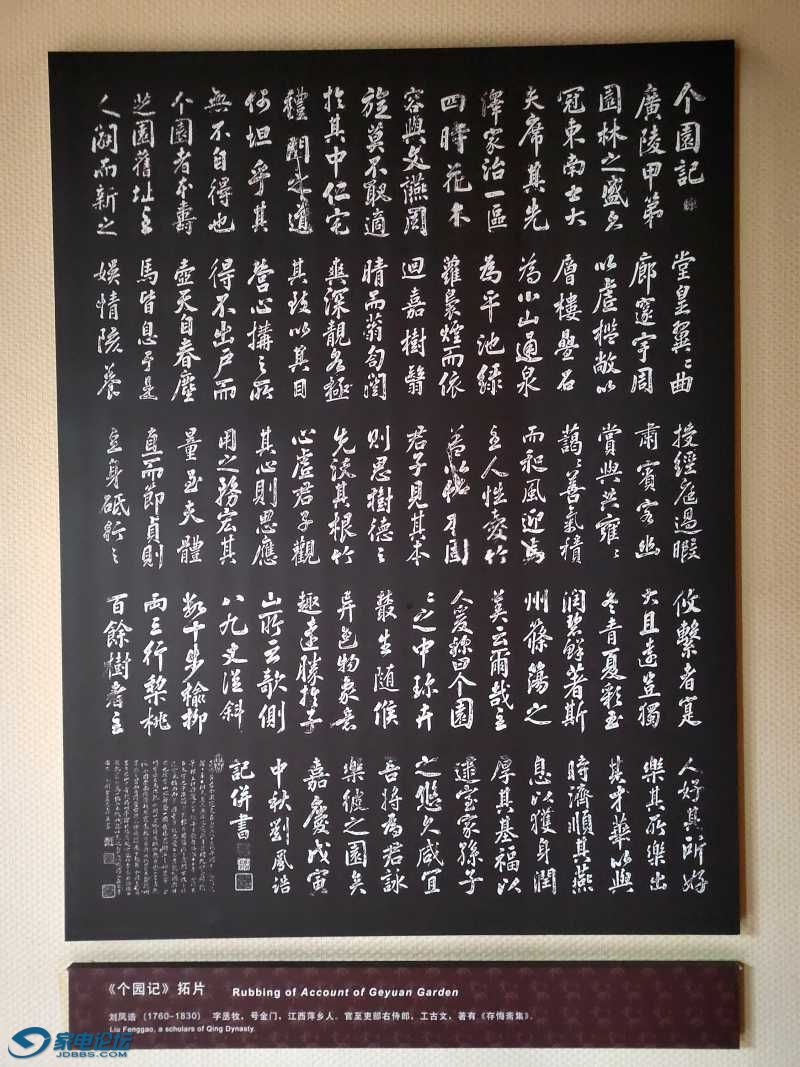 个園記
廣陵甲第
園林之盛名
冠東南士大
夫席其先
澤家治一區
四時花木
容與文讌周
旋莫不取適
於其中仁宅
禮門之道
何坦乎其
無不自得也
个園者本壽
芝園舊址主
人闢而新之
堂皇翼〻曲
廊邃宇周
以虛檻敞以
層樓疊石
為小山通泉
為平池綠
蘿裊煙而依
迴嘉樹翳
晴而蓊匌闓
爽深靚各極
其致以其目
營心構之所
得不出戶而
壺天自春塵
馬皆息于是
娛情陔養
授經庭過暇
肅賓客幽
賞與共雍〻
藹〻善氣積
而和風迎焉
主人性愛竹
蓋以竹本固
君子見其本
則思樹德之
先沃其根竹
心虛君子觀
其心則思應
用之務宏其
量至夫體
直而節貞則
立身砥行之
攸繫者寔
大且遠豈獨
冬青夏彩玉
潤碧鮮著斯
州篠簜之
美云爾哉主
人爰稱曰个園
〻之中珍卉
叢生随候
異色物象意
趣遠勝於子
山所云欹側
八九丈從斜
數十步榆柳
兩三行梨桃
百餘樹者主
人好其所好
樂其所樂出
其才華以與
時濟順其燕
息以獲身潤
厚其基福以
逮室家孫子
之悠久咸宜
吾將為君詠
樂彼之園矣
嘉慶戊寅
中秋劉鳳誥
記併書
《个园记》拓片 Rubbing of Account of Geyuan Garden
刘凤诰 (1760-1830) 字丞牧，号金门，江西萍乡人．官至吏部右侍郎，工古文，著有《存悔斋集》．
Liu Fenggao, a scholars of Qing Dynasty.
家电论坛
JDBBS.COM